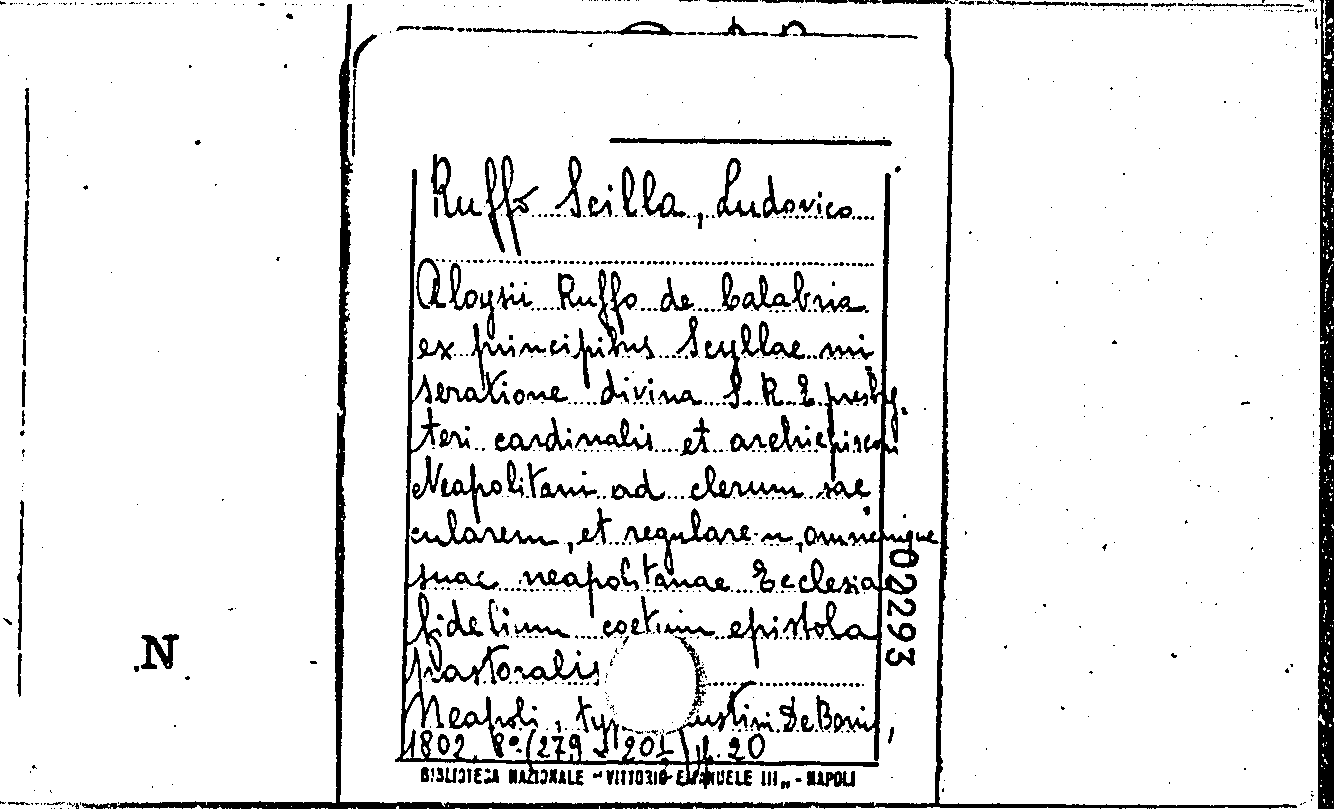 Ruffo Scilla, Ludovico
Aloysii Ruffo de Calabria
ex principibus Scyllae mi
seratione divina S. R. E. presby
teri cardinalis et archiepiscopi
Neapolitani ad clerum sae
cularem, et regularem, omnemque
suae neapolitanae Ecclesiae
fidelium coetum epistola
pastoralis
Neapoli, De Bonis,
1802. 8º. p. 20
BIBLIOTECA NAZIONALE "VITTORIO EMANUELE III" - NAPOLI
02293
N